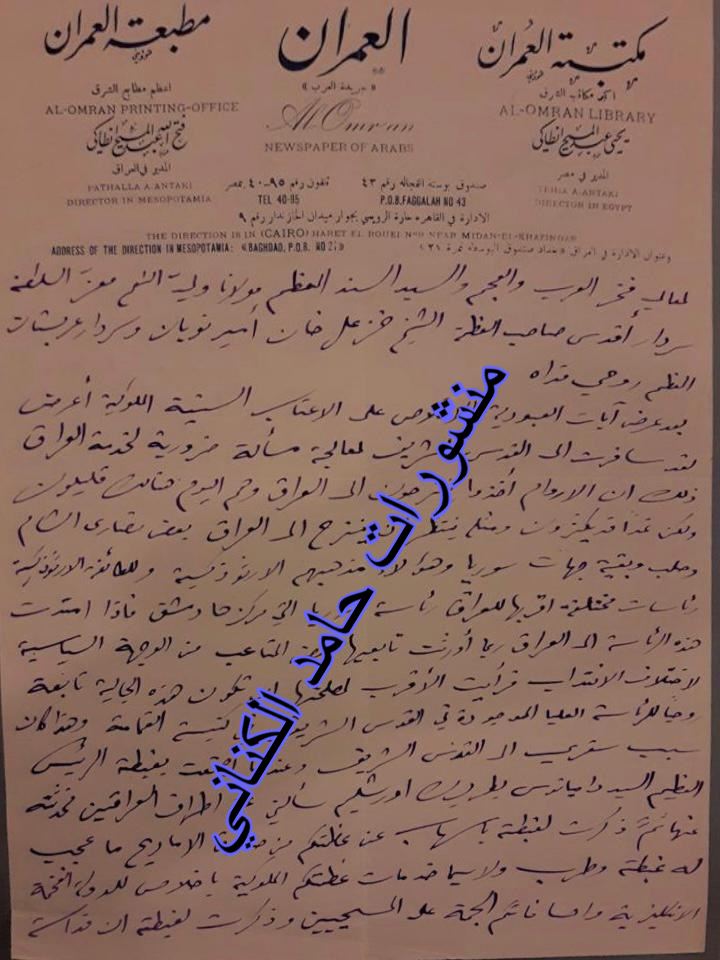 مكتبة العمران
العمران
مطبعة العمران
اكبر مكاتب الشرق
«جريدة العرب»
اعظم مطابع الشرق
AL-OMRAN LIBRARY
Al Omran
AL-OMRAN PRINTING-OFFICE
يحيى عبد المسيح انطاكي
NEWSPAPER OF ARABS
فتح الله عبد المسيح انطاكي
المدير في مصر
المدير في العراق
YEHIA A-ANTAKI
DIRECTOR IN EGYPT
FATHALLA A-ANTAKI
DIRECTOR IN MESOPOTAMIA
صندوق بوستة الفجاله رقم ٤٣
تلفون رقم ٩٥-٤٠ بمصر
P.O.B. FAGGALAH NO 43
TEL 40-95
الادارة في القاهره حارة الرويعي بجوار ميدان الخازندار رقم ٩
THE DIRECTION IS IN (CAIRO) HARET EL ROUEI Nº9 NEAR MIDAN-EL-KHAZINDAR
وعنوان الادارة في العراق «بغداد صندوق البوسطه نمرة ٢١»
ADDRESS OF THE DIRECTION IN MESOPOTAMIA: «BAGHDAD, P.O.B. NO 21»
لمعالي فخر العرب والعجم والسيد السند المعظم مولانا ولي النعم معز السلطنة
سردار أقدس صاحب العظمة الشيخ خزعل خان أمير نويان وسردار عربستان
المعظم روحي فداه
بعد عرض آيات العبودية على الاعتاب السنية الملوكية أعرض
لقد سافرت الى القدس الشريف لمعالجة مسألة ضرورية لخدمة العراق
ذلك ان الاروام أخذوا ينزحون الى العراق وهم اليوم هنالك قليلون
ولكن غدا قد يكثرون ومثله ينتظر ان ينزح الى العراق بعض نصارى الشام
وحلب وبقية جهات سوريا وهؤلاء مذهبهم الارثوذكسية وللطائفة الارثوذكسية
رئاسات مختلفة اقربها للعراق رئاسة سوريا التي مركزها دمشق فاذا امتدت
هذه الرئاسة الى العراق ربما أورثت تابعيها المتاعب من الوجهة السياسية
لاختلاف الانتداب فرأيت الأقرب لمصلحتها ان تكون هذه الجالية تابعة
روحيا للرئاسة العليا الموجودة في القدس الشريف كنيسة القيامة وهذا كان
سبب سفري الى القدس الشريف وعندما اجتمعت بغبطة الرئيس
العظيم السيد داميانوس بطريرك اورشليم سألني عن اطراف العراقين فحدثته
عنها ثم ذكرت لغبطته باسهاب عن عظمتكم من الاماديح ما عجب
له غبطته وطرب ولاسيما خدمات عظمتكم الملوكية باخلاص للدولة الفخمة
الانكليزية واحساناتكم الجمة على المسيحيين وذكرت لغبطته ان قداسة
منشورات حامد الكناني